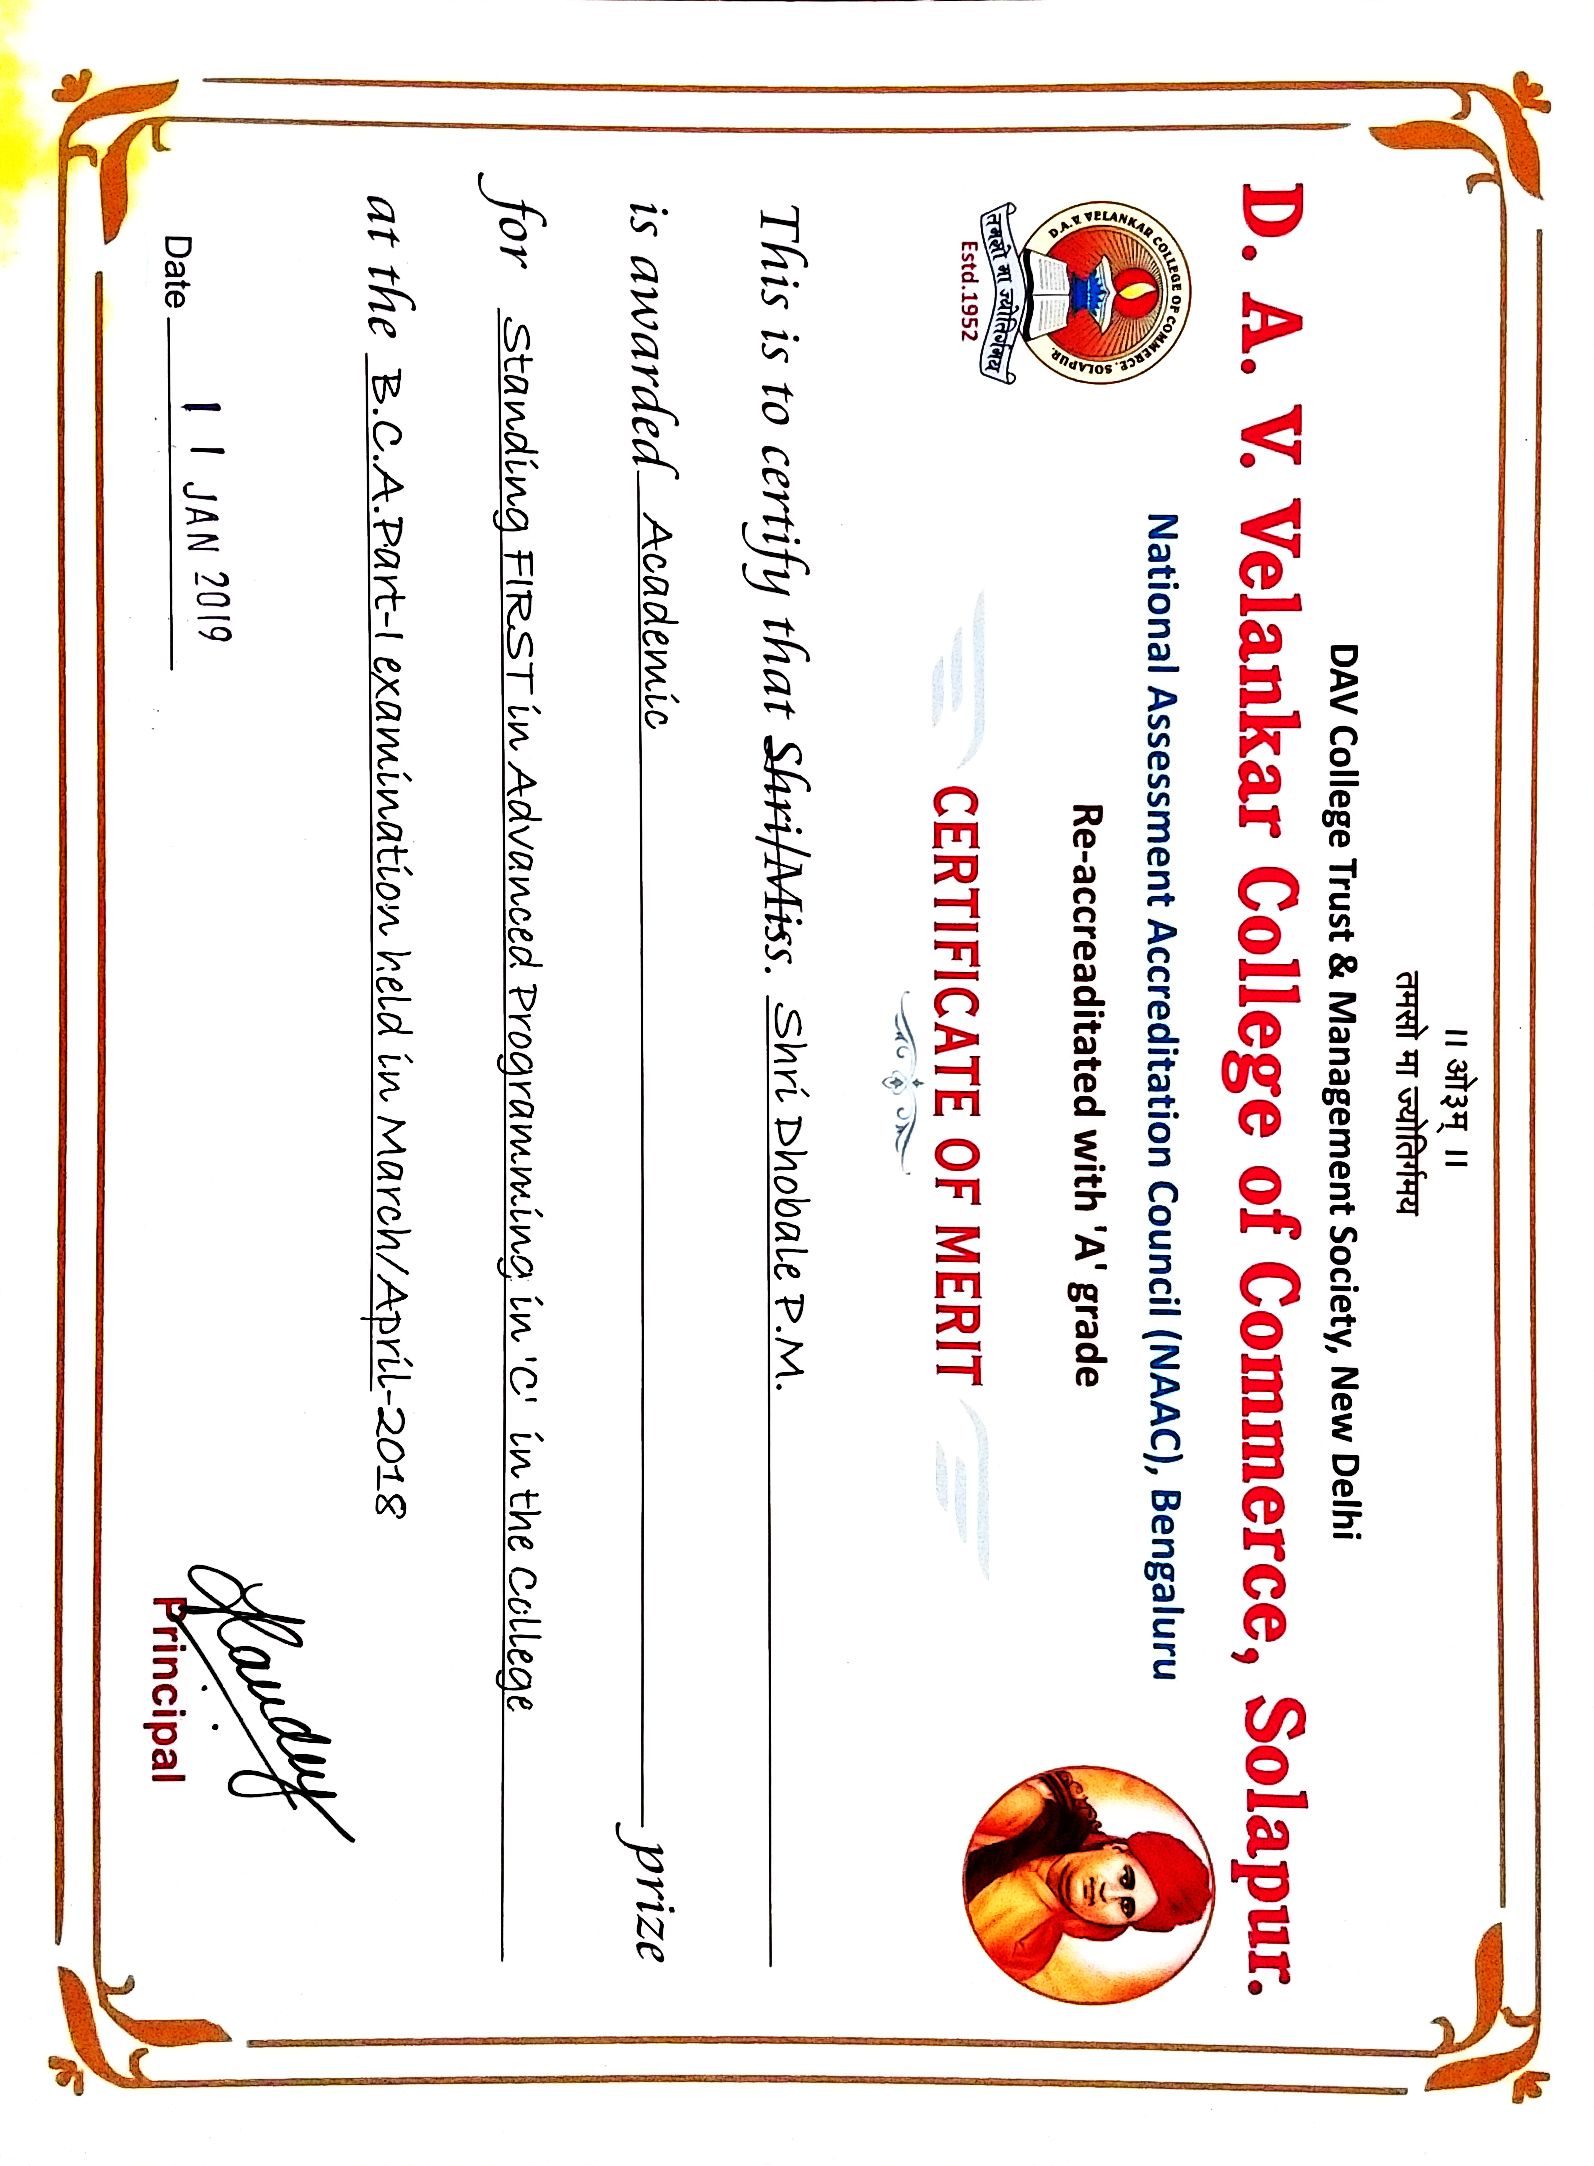 ॥ ओ३म् ॥
तमसो मा ज्योतिर्गमय
DAV College Trust & Management Society, New Delhi
D. A. V. Velankar College of Commerce, Solapur.
D.A.V. VELANKAR COLLEGE OF COMMERCE, SOLAPUR.
तमसो मा ज्योतिर्गमय
Estd.1952
National Assessment Accreditation Council (NAAC), Bengaluru
Re-accreaditated with 'A' grade
CERTIFICATE OF MERIT
This is to certify that Shri/Miss. Shri Dhobale P.M.
is awarded Academic prize
for Standing FIRST in Advanced Programming in 'C' in the College
at the B.C.A.Part-I examination held in March/April-2018
Date 11 JAN 2019
Principal